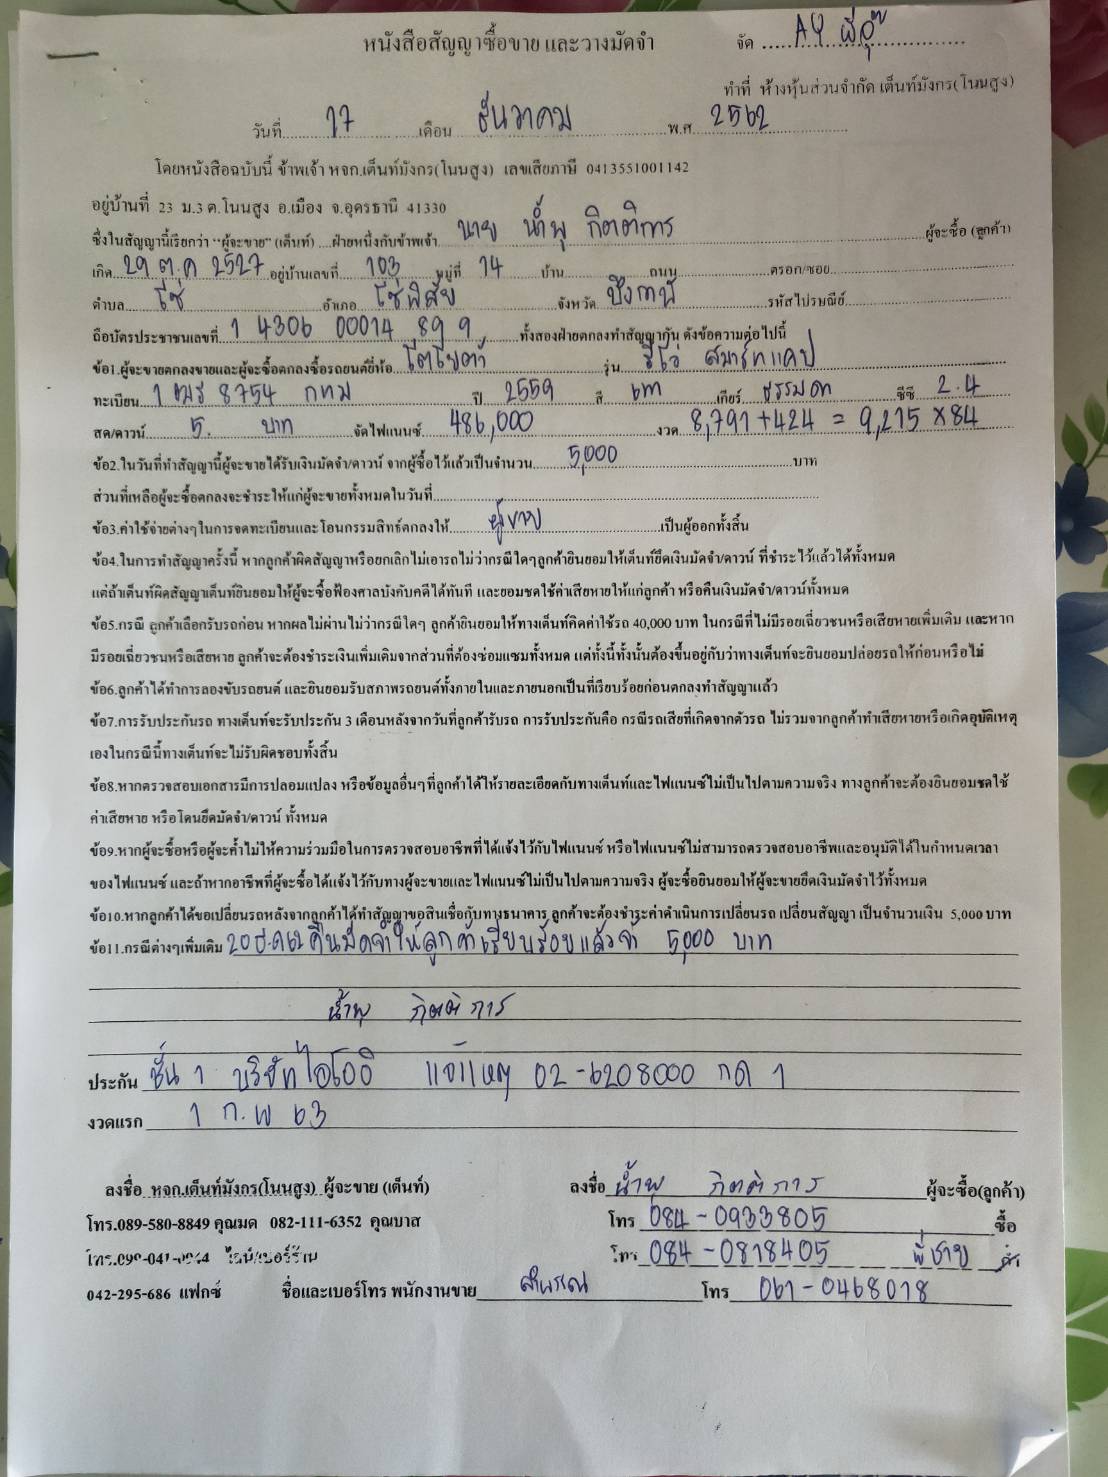 หนังสือสัญญาซื้อขาย และวางมัดจำ
จัด AY
ทำที่ ห้างหุ้นส่วนจำกัด เต็นท์มังกร(โนนสูง)
วันที่ 17 เดือน ธันวาคม พ.ศ 2562
โดยหนังสือฉบับนี้ ข้าพเจ้า หจก.เต็นท์มังกร(โนนสูง) เลขเสียภาษี 0413551001142
อยู่บ้านที่ 23 ม.3 ต.โนนสูง อ.เมือง จ.อุดรธานี 41330
ซึ่งในสัญญานี้เรียกว่า "ผู้จะขาย" (เต็นท์) ....ฝ่ายหนึ่งกับข้าพเจ้า นาย น้ำพุ กิตติการ ผู้จะซื้อ (ลูกค้า)
เกิด 29 ต.ค 2527 อยู่บ้านเลขที่ 103 หมู่ที่ 14 บ้าน ถนน ตรอก/ซอย
ตำบล โซ่ อำเภอ โซ่พิสัย จังหวัด บึงกาฬ รหัสไปรษณีย์
ถือบัตรประชาชนเลขที่ 1 4306 00014 89 9 ทั้งสองฝ่ายตกลงทำสัญญากัน ดังข้อความต่อไปนี้
ข้อ1.ผู้จะขายตกลงขายและผู้จะซื้อตกลงซื้อรถยนต์ยี่ห้อ โตโยต้า รุ่น รีโว่ สมาร์ทแคป
ทะเบียน 1 8754 กทม ปี 2559 สี เทา เกียร์ ธรรมดา ซีซี 2.4
สด/ดาวน์ 5. บาท จัดไฟแนนซ์ 486,000 งวด 8,791+424 = 9,215 x84
ข้อ2.ในวันที่ทำสัญญานี้ผู้จะขายได้รับเงินมัดจำ/ดาวน์ จากผู้ซื้อไว้แล้วเป็นจำนวน 5,000 บาท
ส่วนที่เหลือผู้จะซื้อตกลงจะชำระให้แก่ผู้จะขายทั้งหมดในวันที่
ข้อ3.ค่าใช้จ่ายต่างๆในการจดทะเบียนและโอนกรรมสิทธิ์ตกลงให้ ผู้ขาย เป็นผู้ออกทั้งสิ้น
ข้อ4.ในการทำสัญญาครั้งนี้ หากลูกค้าผิดสัญญาหรือยกเลิกไม่เอารถไม่ว่ากรณีใดๆลูกค้ายินยอมให้เต็นท์ยึดเงินมัดจำ/ดาวน์ ที่ชำระไว้แล้วได้ทั้งหมด
แต่ถ้าเต็นท์ผิดสัญญาเต็นท์ยินยอมให้ผู้จะซื้อฟ้องศาลบังคับคดีได้ทันที และยอมชดใช้ค่าเสียหายให้แก่ลูกค้า หรือคืนเงินมัดจำ/ดาวน์ทั้งหมด
ข้อ5.กรณี ลูกค้าเลือกรับรถก่อน หากผลไม่ผ่านไม่ว่ากรณีใดๆ ลูกค้ายินยอมให้ทางเต็นท์คิดค่าใช้รถ 40,000 บาท ในกรณีที่ไม่มีรอยเฉี่ยวชนหรือเสียหายเพิ่มเติม และหาก
มีรอยเฉี่ยวชนหรือเสียหาย ลูกค้าจะต้องชำระเงินเพิ่มเติมจากส่วนที่ต้องซ่อมแซมทั้งหมด แต่ทั้งนี้ทั้งนั้นต้องขึ้นอยู่กับว่าทางเต็นท์จะยินยอมปล่อยรถให้ก่อนหรือไม่
ข้อ6.ลูกค้าได้ทำการลองขับรถยนต์ และยินยอมรับสภาพรถยนต์ทั้งภายในและภายนอกเป็นที่เรียบร้อยก่อนตกลงทำสัญญาแล้ว
ข้อ7.การรับประกันรถ ทางเต็นท์จะรับประกัน 3 เดือนหลังจากวันที่ลูกค้ารับรถ การรับประกันคือ กรณีรถเสียที่เกิดจากตัวรถ ไม่รวมจากลูกค้าทำเสียหายหรือเกิดอุบัติเหตุ
เองในกรณีนี้ทางเต็นท์จะไม่รับผิดชอบทั้งสิ้น
ข้อ8.หากตรวจสอบเอกสารมีการปลอมแปลง หรือข้อมูลอื่นๆที่ลูกค้าได้ให้รายละเอียดกับทางเต็นท์และไฟแนนซ์ไม่เป็นไปตามความจริง ทางลูกค้าจะต้องยินยอมชดใช้
ค่าเสียหาย หรือโดนยึดมัดจำ/ดาวน์ ทั้งหมด
ข้อ9.หากผู้จะซื้อหรือผู้จะค้ำไม่ให้ความร่วมมือในการตรวจสอบอาชีพที่ได้แจ้งไว้กับไฟแนนซ์ หรือไฟแนนซ์ไม่สามารถตรวจสอบอาชีพและอนุมัติได้ในกำหนดเวลา
ของไฟแนนซ์ และถ้าหากอาชีพที่ผู้จะซื้อได้แจ้งไว้กับทางผู้จะขายและไฟแนนซ์ไม่เป็นไปตามความจริง ผู้จะซื้อยินยอมให้ผู้จะขายยึดเงินมัดจำไว้ทั้งหมด
ข้อ10.หากลูกค้าได้ขอเปลี่ยนรถหลังจากลูกค้าได้ทำสัญญาขอสินเชื่อกับทางธนาคาร ลูกค้าจะต้องชำระค่าดำเนินการเปลี่ยนรถ เปลี่ยนสัญญา เป็นจำนวนเงิน 5,000 บาท
ข้อ11.กรณีต่างๆเพิ่มเติม 20 ธ.ค 62 คืนมัดจำให้ลูกค้าเรียบร้อยแล้วจ้า 5,000 บาท
น้ำพุ กิตติการ
ประกัน ชั้น 1 บริษัทไอโออิ แจ้งเหตุ 02-6208000 กด 1
งวดแรก 1 ก.พ 63
ลงชื่อ หจก.เต็นท์มังกร(โนนสูง) ผู้จะขาย (เต็นท์)
ลงชื่อ น้ำพุ กิตติการ ผู้จะซื้อ(ลูกค้า)
โทร.089-580-8849 คุณมด 082-111-6352 คุณบาส
โทร 084-0933805 ซื้อ
โทร.
โทร 084-0818405 พี่ชาย
042-295-686 แฟกซ์ ชื่อและเบอร์โทร พนักงานขาย ลำพรรณ โทร 061-0468018